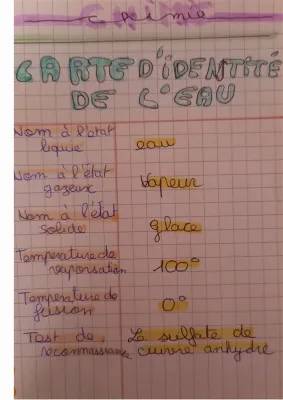 CHIMIE
chimie
CARTE D'IDENTITÉ
DE L'EAU
Nom à l'état
liquie
eau
Nom à l'état
gazeux
Vapeur
Nom à l'état
solide
glace
Température de
vaporisation
100°
Température de
fusion
0°
Test de
reconnaissance
Le sulfate de
cuivre anhydre